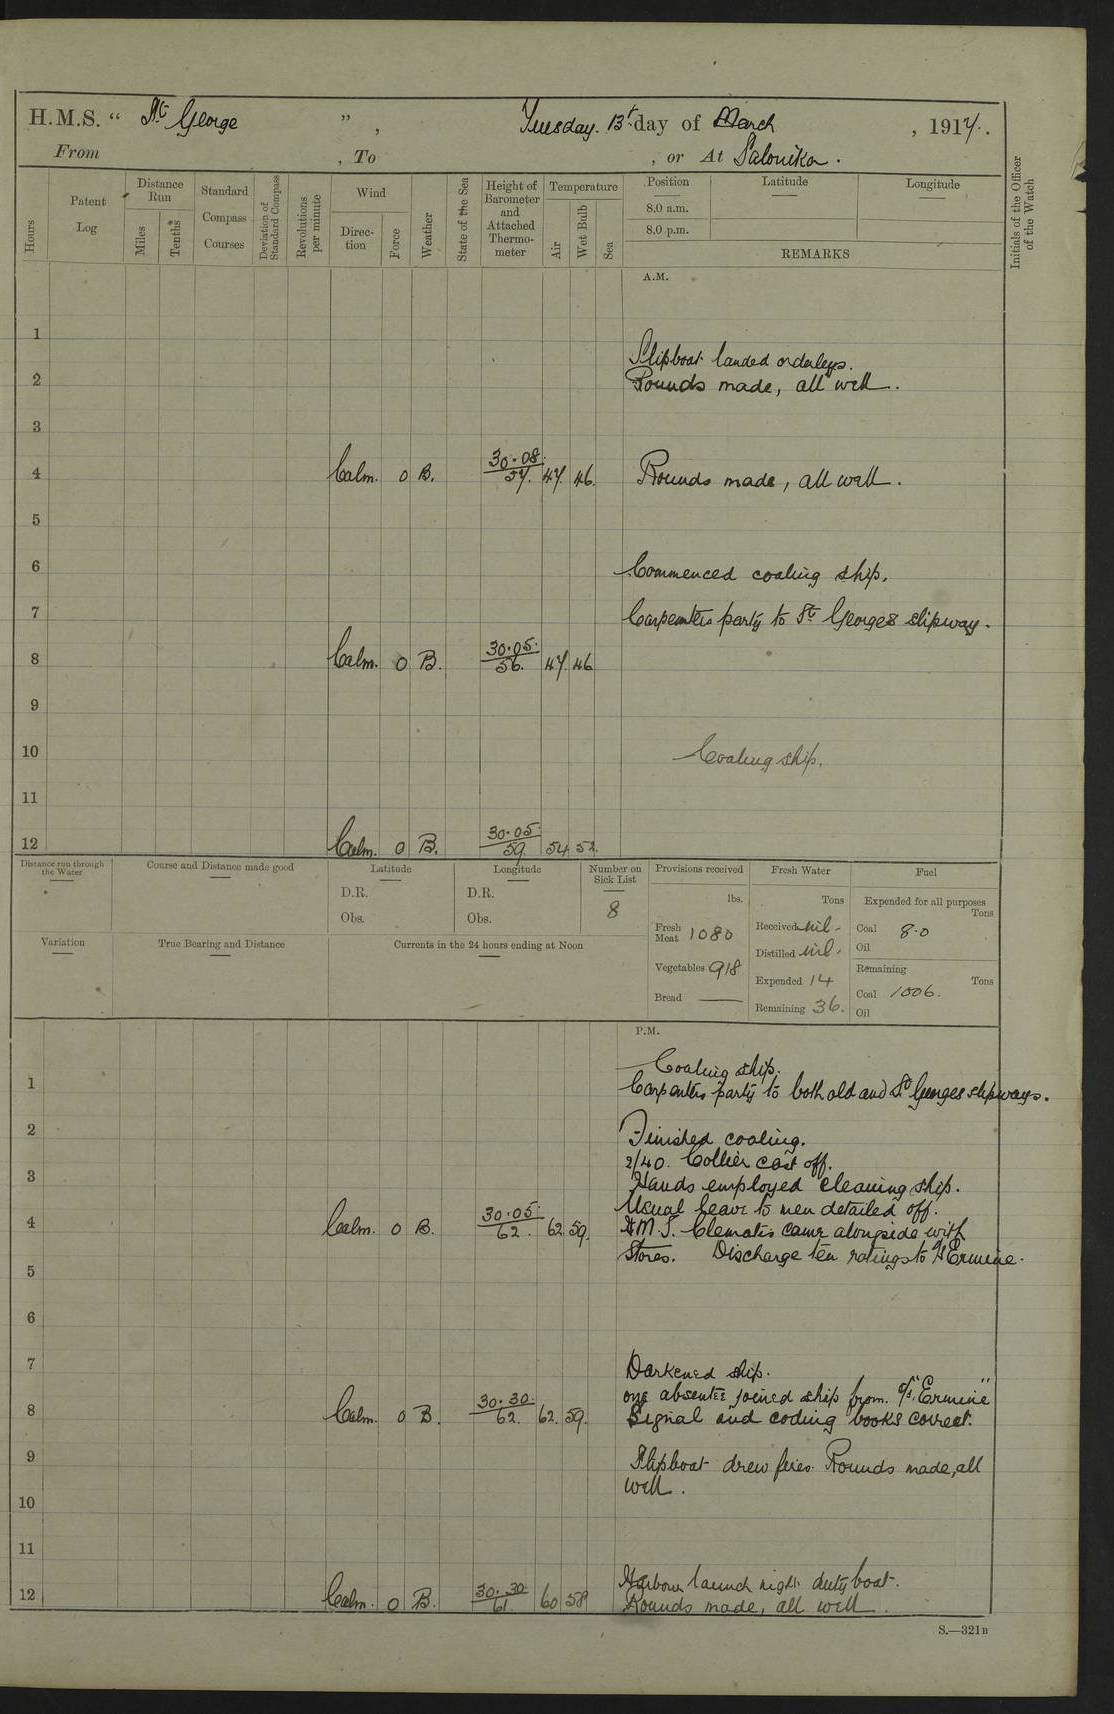 H.M.S. “ St George ” , Tuesday. 13th day of March , 1917.
From , To , or At Salonika.
Hours
Patent Log
Distance Run
Miles
Tenths
Standard Compass Courses
Deviation of Standard Compass
Revolutions per minute
Wind
Direction
Force
Weather
State of the Sea
Height of Barometer and Attached Thermometer
Temperature
Air
Wet Bulb
Sea
Position
Latitude
Longitude
8.0 a.m.
8.0 p.m.
REMARKS
Initials of the Officer of the Watch
A.M.
1
Slipboat landed orderleys.
2 Rounds made, all well.
3
4 Calm. 0 B. 30.08. 57. 47. 46. Rounds made, all well.
5
6 Commenced coaling ship.
7 Carpenters party to St Georges slipway.
8 Calm. 0 B. 30.05. 56. 47. 46
9
10 Coaling ship.
11
12 Calm. 0 B. 30.05. 59. 54 52.
Distance run through the Water
Course and Distance made good
Latitude
D.R.
Obs.
Longitude
D.R.
Obs.
Number on Sick List
8
Provisions received
lbs.
Fresh Meat 1080
Vegetables 918
Bread
Fresh Water
Tons
Received nil.
Distilled nil.
Expended 14
Remaining 36.
Fuel
Expended for all purposes
Tons
Coal 8.0
Oil
Remaining
Tons
Coal 1006.
Oil
Variation
True Bearing and Distance
Currents in the 24 hours ending at Noon
P.M.
Coaling ship.
1 Carpenters party to both old and St Georges slipways.
2 Finished coaling.
2/40. Collier cast off.
3 Hands employed cleaning ship.
Usual leave to men detailed off.
4 Calm. 0 B. 30.05. 62. 62 59. H.M.S. Clematis came alongside with
stores. Discharge ten ratings to Ermine.
5
6
7 Darkened ship.
one absentee joined ship from "Ermine"
8 Calm. 0 B. 30.30. 62. 62. 59. Signal and coding books correct.
9 Slipboat drew fires. Rounds made, all
well.
10
11
Harbour launch night duty boat.
12 Calm. 0 B. 30.30. 61. 60 58 Rounds made, all well.
S.—321B